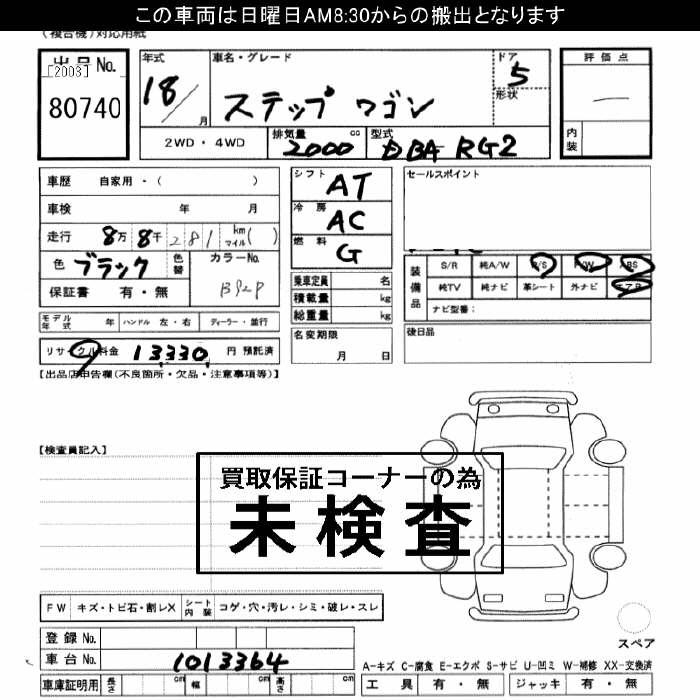 この車両は日曜日AM8:30からの搬出となります
(複合機)対応用紙
出品No.
[2003]
80740
年式
18/
月
車名・グレード
ステップ ワゴン
ドア
5
形状
評価点
内装
2WD・4WD
排気量
2000
cc
型式
DBA RG2
車歴 自家用・( )
車検 年 月
走行 8万 8千 281 km マイル( )
色 ブラック
色替
カラーNo.
B92P
保証書 有・無
シフト
AT
冷房
AC
燃料
G
乗車定員 名
積載量 kg
総重量 kg
セールスポイント
装備品
S/R 純A/W P/S P/W ABS
純TV 純ナビ 革シート 外ナビ エアB
ナビ型番：
モデル年式 年 ハンドル 左・右 ディーラー・並行
名変期限
月 日
後日品
リサイクル料金 13,330 円 預託済
【出品店申告欄(不良箇所・欠品・注意事項等)】
【検査員記入】
買取保証コーナーの為
未検査
FW キズ・トビ石・割レX シート内装 コゲ・穴・汚レ・シミ・破レ・スレ
登録No.
車台No. 1013364
スペア
A-キズ C-腐食 E-エクボ S-サビ U-凹ミ W-補修 XX-交換済
車庫証明用 長さ cm 幅 cm 高さ cm
工具 有・無 ジャッキ 有・無